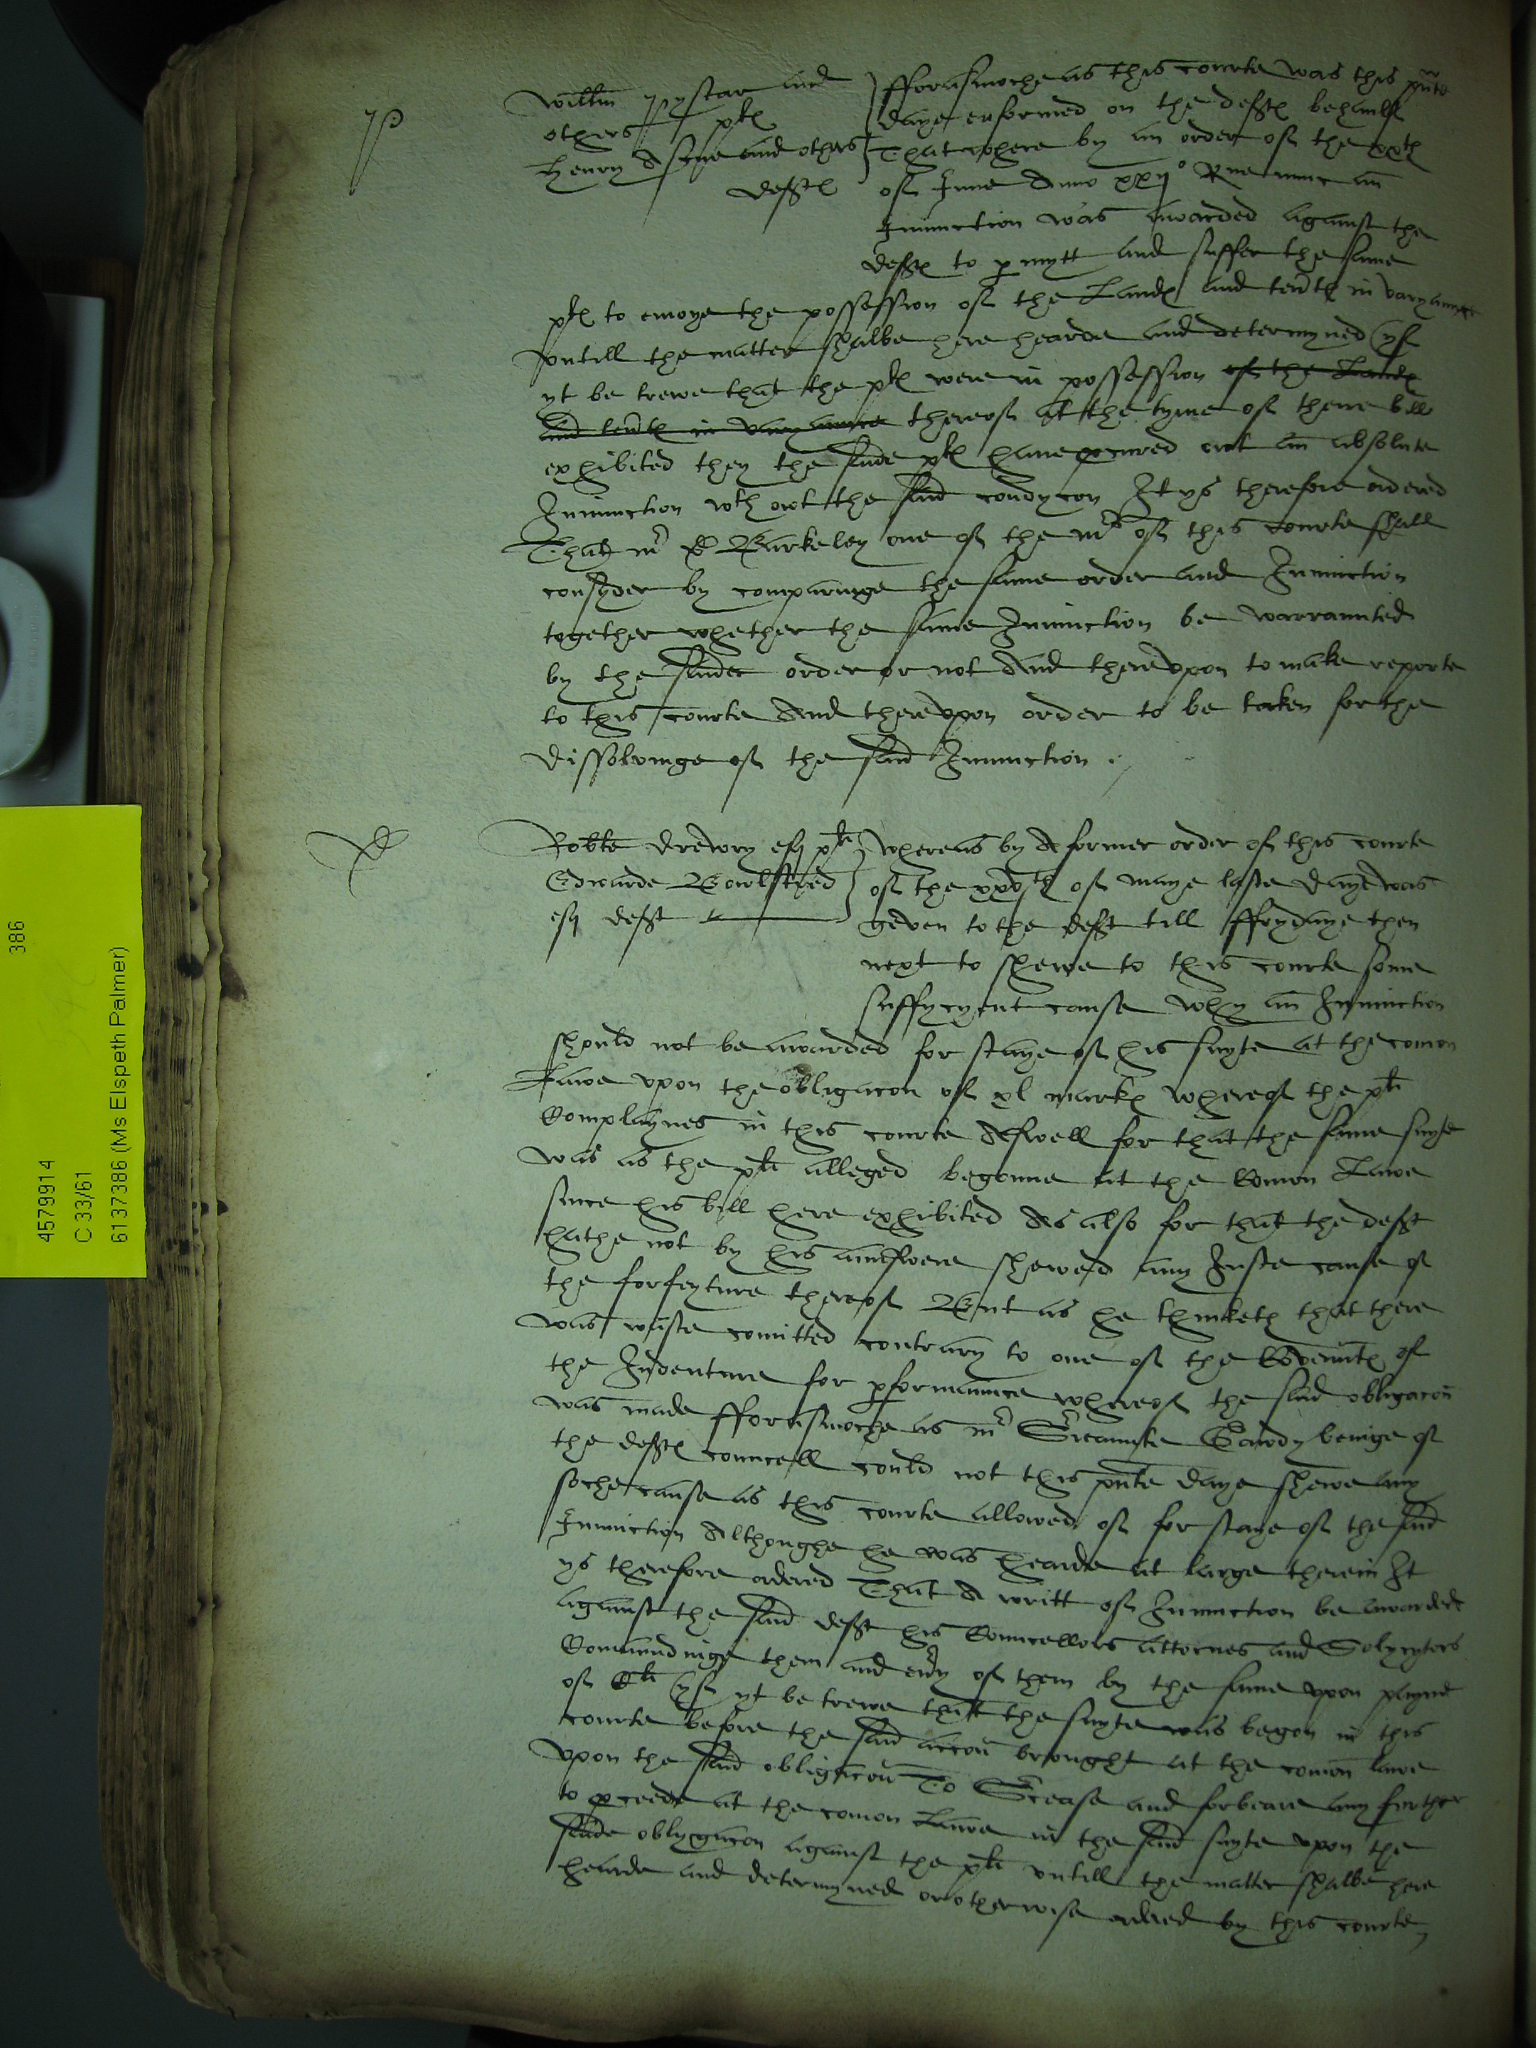 P
Willm Pystar and
others plts
Henry A fyne and others
defts
fforasmoche as this courte was this pnte
daye enformed on the defts behaulf
That where by an order of the xxth
of June Anno xxijo Rne nunc an
Iniunction was awarded against the
defts to pmytt and suffer the same
plts to enioye the possession of the Lands and tents in varyannce
untill the matter shalbe here hearde and determyned (yf
yt be trewe that the plts were in possession of the Lands
and tents in varyannce thereof at the tyme of there bill
exhibited they the saide plts have pcured out an absolute
Iniunction wth owt the said condycon It ys therefore ordered
That mr D Barkeley one of the mrs of this courte shall
consyder by comparinge the same order and Iniunction
together whether the same Iniunction be warraunted
by the saide order or not And thereupon to make reporte
to this courte And thereupon order to be taken for the
dissolvinge of the said Iniunction
D
Robte Drewry esq plt
Edwarde Bowlstred
esq deft
whereas by A former order of this courte
of the xxvth of maye laste daye was
geven to the deft till ffrydaye then
next to shewe to this courte some
suffycyent cause why an Iniunction
should not be awarded for staye of his suyte at the comon
Lawe upon the obligacon of xl marks whereof the plt
Complaynes in this courte Aswell for that the same suyte
was as the plt alleged begonne at the Comon Lawe
since his bill here exhibited As also for that the deft
hathe not by his aunswere shewed any Juste cause of
the forfeyture thereof But as he thinketh that there
was waste comitted contrary to one of the Covenntes of
the Indenture for pformaunce whereof the said obligacon
was made fforasmoche as mr Sreaunte Gawdy beinge of
the defts councell could not this pnte daye shewe any
soche cause as this courte allowed of for staye of the said
Iniunction Althoughe he was hearde at large therein It
ys therefore ordered That A writt of Iniunction be awarded
against the said deft his Councellors attornes and Solycytors
Comaundinge them and evry of them by the same upon payne
of Cli (yf yt be trewe that the suyte was begon in this
courte before the said accon brought at the comon lawe
upon the said obligacon To Srcease and forbeare any further
to pceede at the comon Lawe in the said suyte upon the
saide oblygacon against the plt untill the matter shalbe here
hearde and determyned or otherwise ordered by this courte
386
4579914
C 33/61
6137386 (Ms Elspeth Palmer)